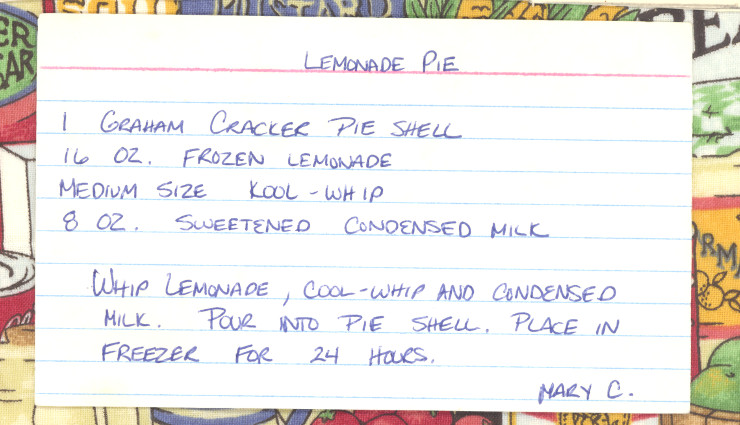 LEMONADE PIE
1 GRAHAM CRACKER PIE SHELL
16 OZ. FROZEN LEMONADE
MEDIUM SIZE KOOL-WHIP
8 OZ. SWEETENED CONDENSED MILK
WHIP LEMONADE, COOL-WHIP AND CONDENSED
MILK. POUR INTO PIE SHELL. PLACE IN
FREEZER FOR 24 HOURS.
MARY C.